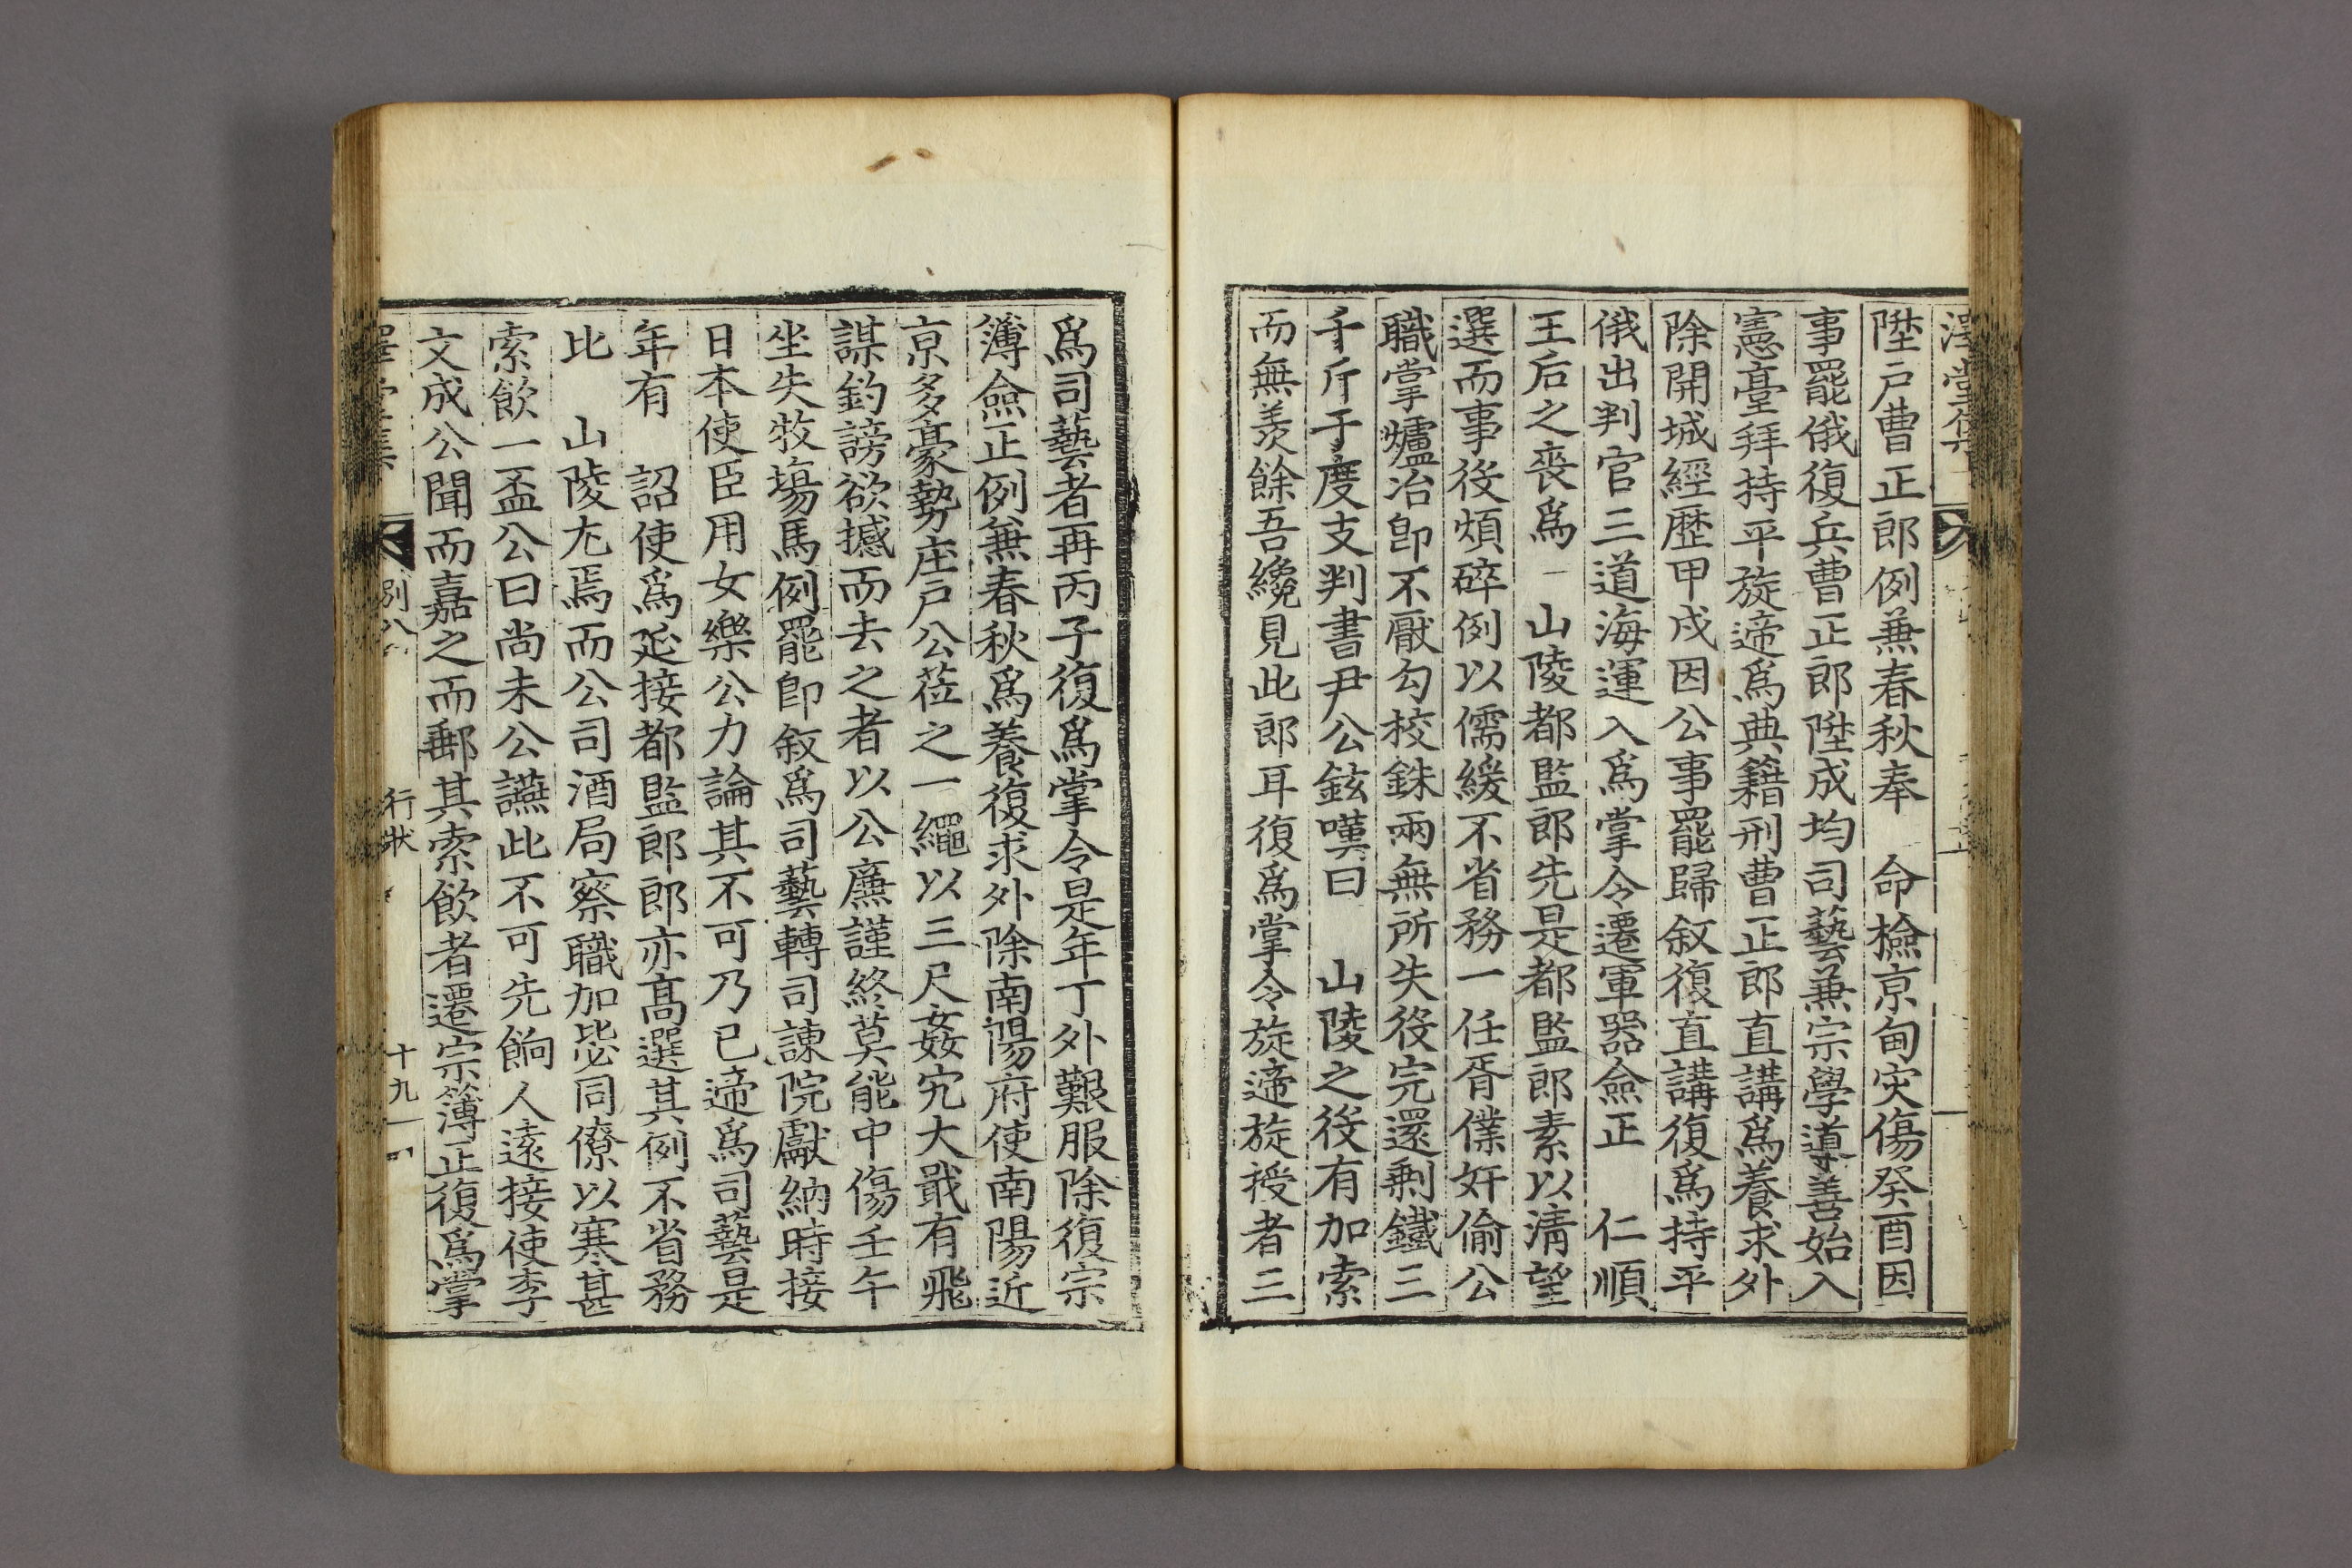 澤堂集
陞戶曹正郎例兼春秋奉　命檢京甸灾傷癸酉因
事罷俄復兵曹正郎陞成均司藝兼宗學導善始入
憲臺拜持平旋遞爲典籍刑曹正郎直講爲養求外
除開城經歷甲戍因公事罷歸敘復直講復爲持平
俄出判官三道海運入爲掌令遷軍器僉正　仁順
王后之喪爲　山陵都監郎先是都監郎素以淸望
選而事役煩碎例以儒緩不省務一任胥僕奸偷公
職掌爐冶卽不厭勾校銖兩無所失役完還剩鐵三
千斤于度支判書尹公鉉嘆曰　山陵之役有加索
而無羨餘吾纔見此郎耳復爲掌令旋遞旋授者三
爲司藝者再丙子復爲掌令是年丁外艱服除復宗
簿僉正例兼春秋爲養復求外除南陽府使南陽近
京多豪勢庄戶公莅之一繩以三尺姦宄大戢有飛
謀釣謗欲撼而去之者以公廉謹終莫能中傷壬午
坐失牧塲馬例罷卽敘爲司藝轉司諫院獻納時接
日本使臣用女樂公力論其不可乃已遞爲司藝是
年有　詔使爲延接都監郎郎亦高選其例不省務
比　山陵尤焉而公司酒局察職加毖同僚以寒甚
索飮一盃公曰尚未公讌此不可先餉人遠接使李
文成公聞而嘉之而郵其索飮者遷宗簿正復爲掌
澤堂集　別八　行狀　十九